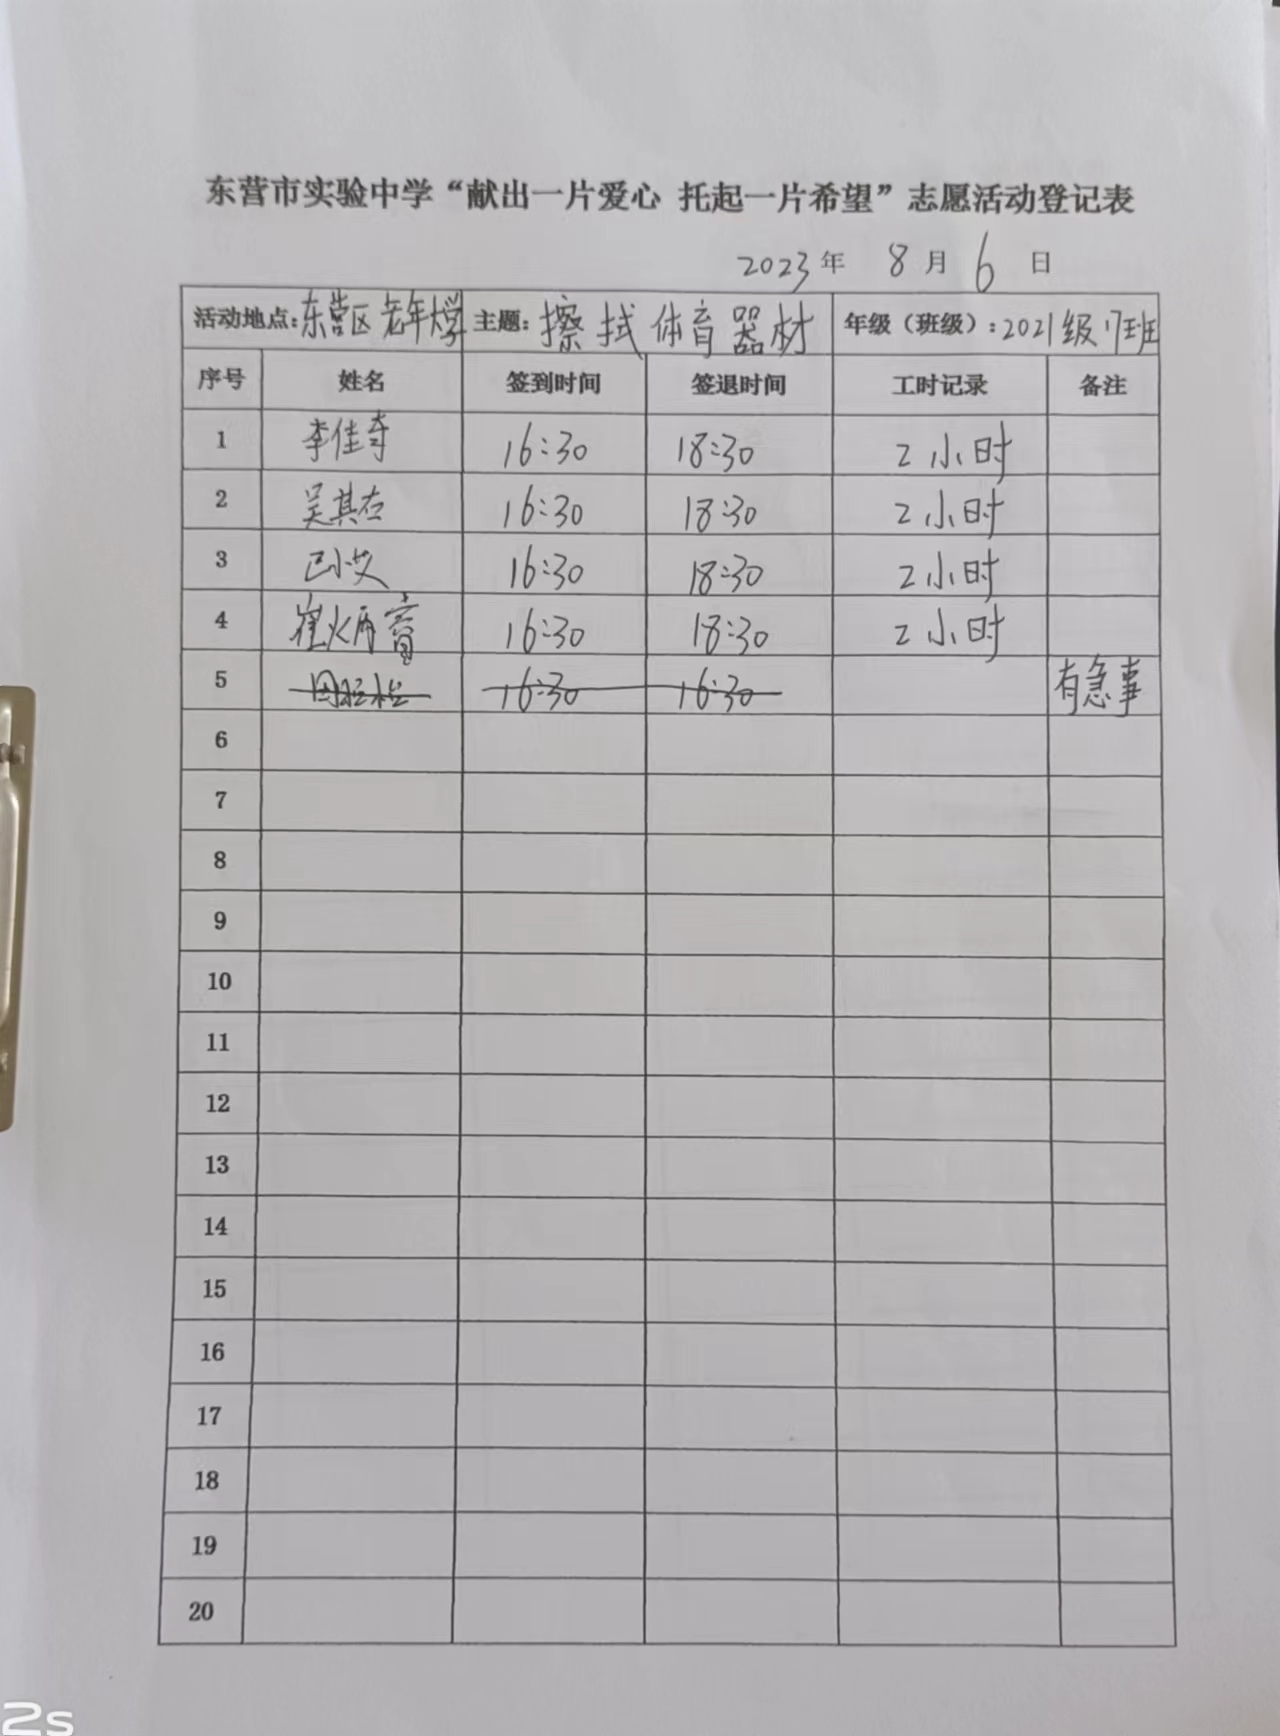 东营市实验中学“献出一片爱心 托起一片希望”志愿活动登记表
2023年 8月 6日
活动地点:东营区老年大学 主题:擦拭体育器材 年级（班级）:2021级17班
序号 姓名 签到时间 签退时间 工时记录 备注
1 李佳奇 16:30 18:30 2小时
2 吴其 16:30 18:30 2小时
3 16:30 18:30 2小时
4 崔炳 16:30 18:30 2小时
5 16:30 16:30 有急事
6
7
8
9
10
11
12
13
14
15
16
17
18
19
20
2s